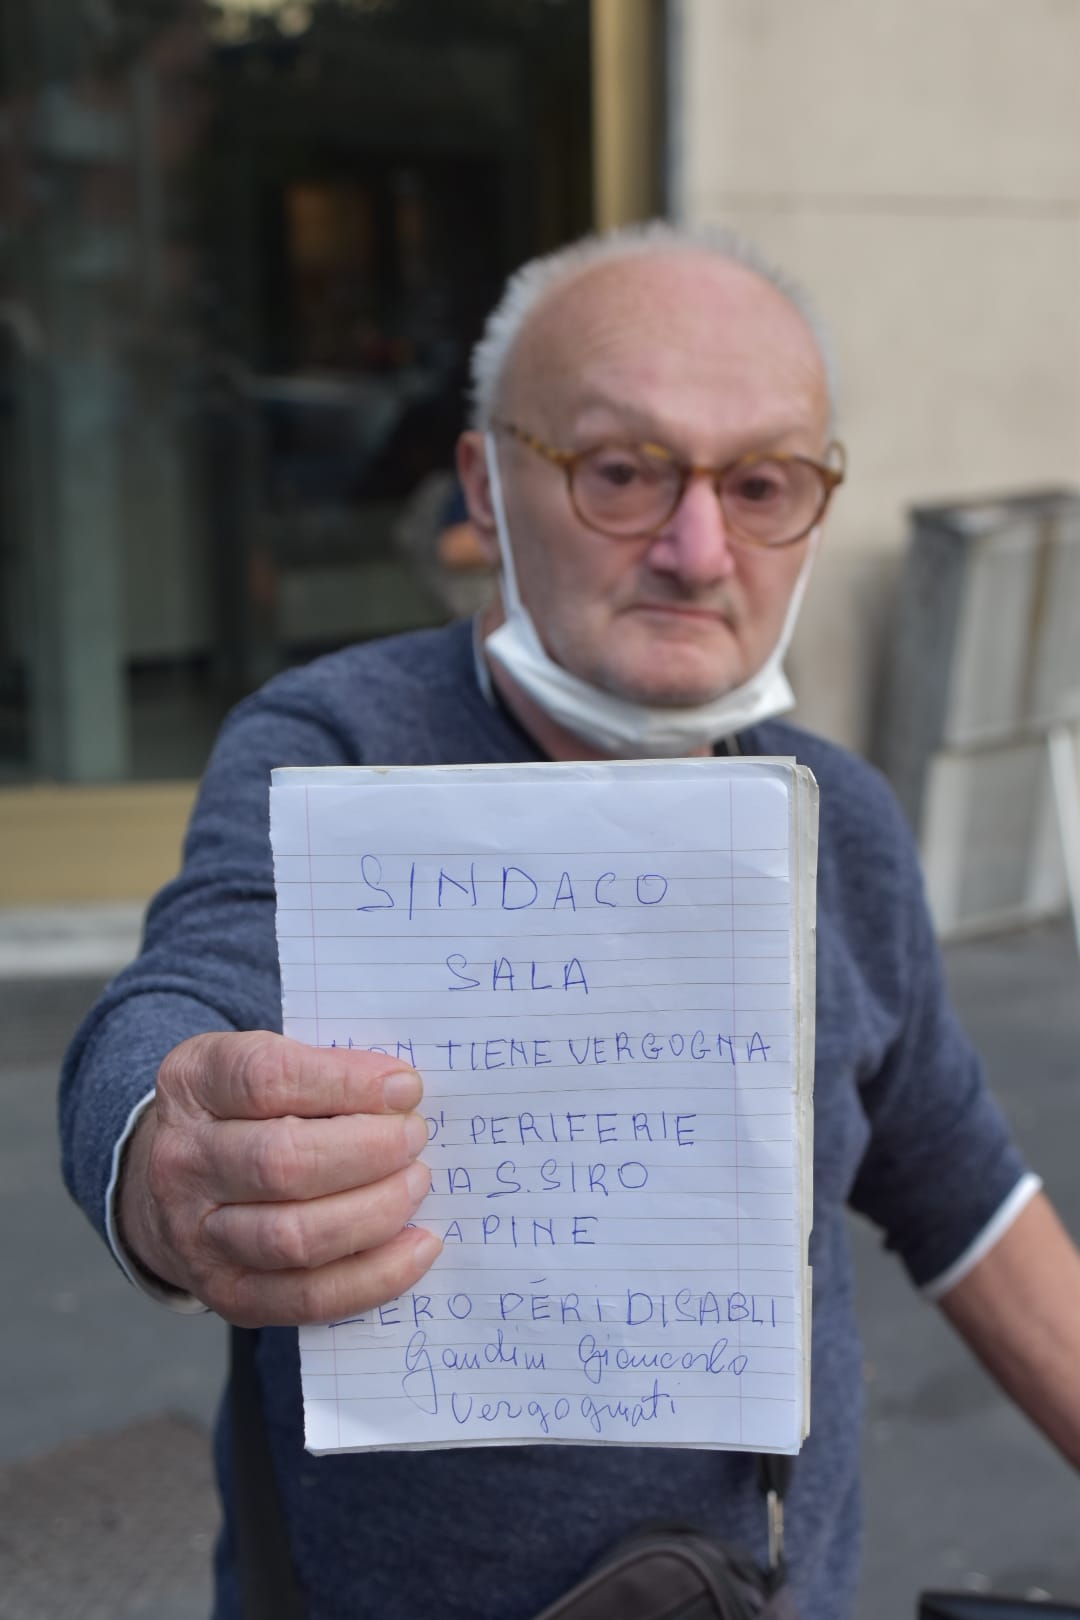 SINDACO
SALA
NON TIENE VERGOGNA
PERIFERIE
S.SIRO
RAPINE
ZERO PĒRI DISABLI
Gaudini Giancarlo
Vergognati